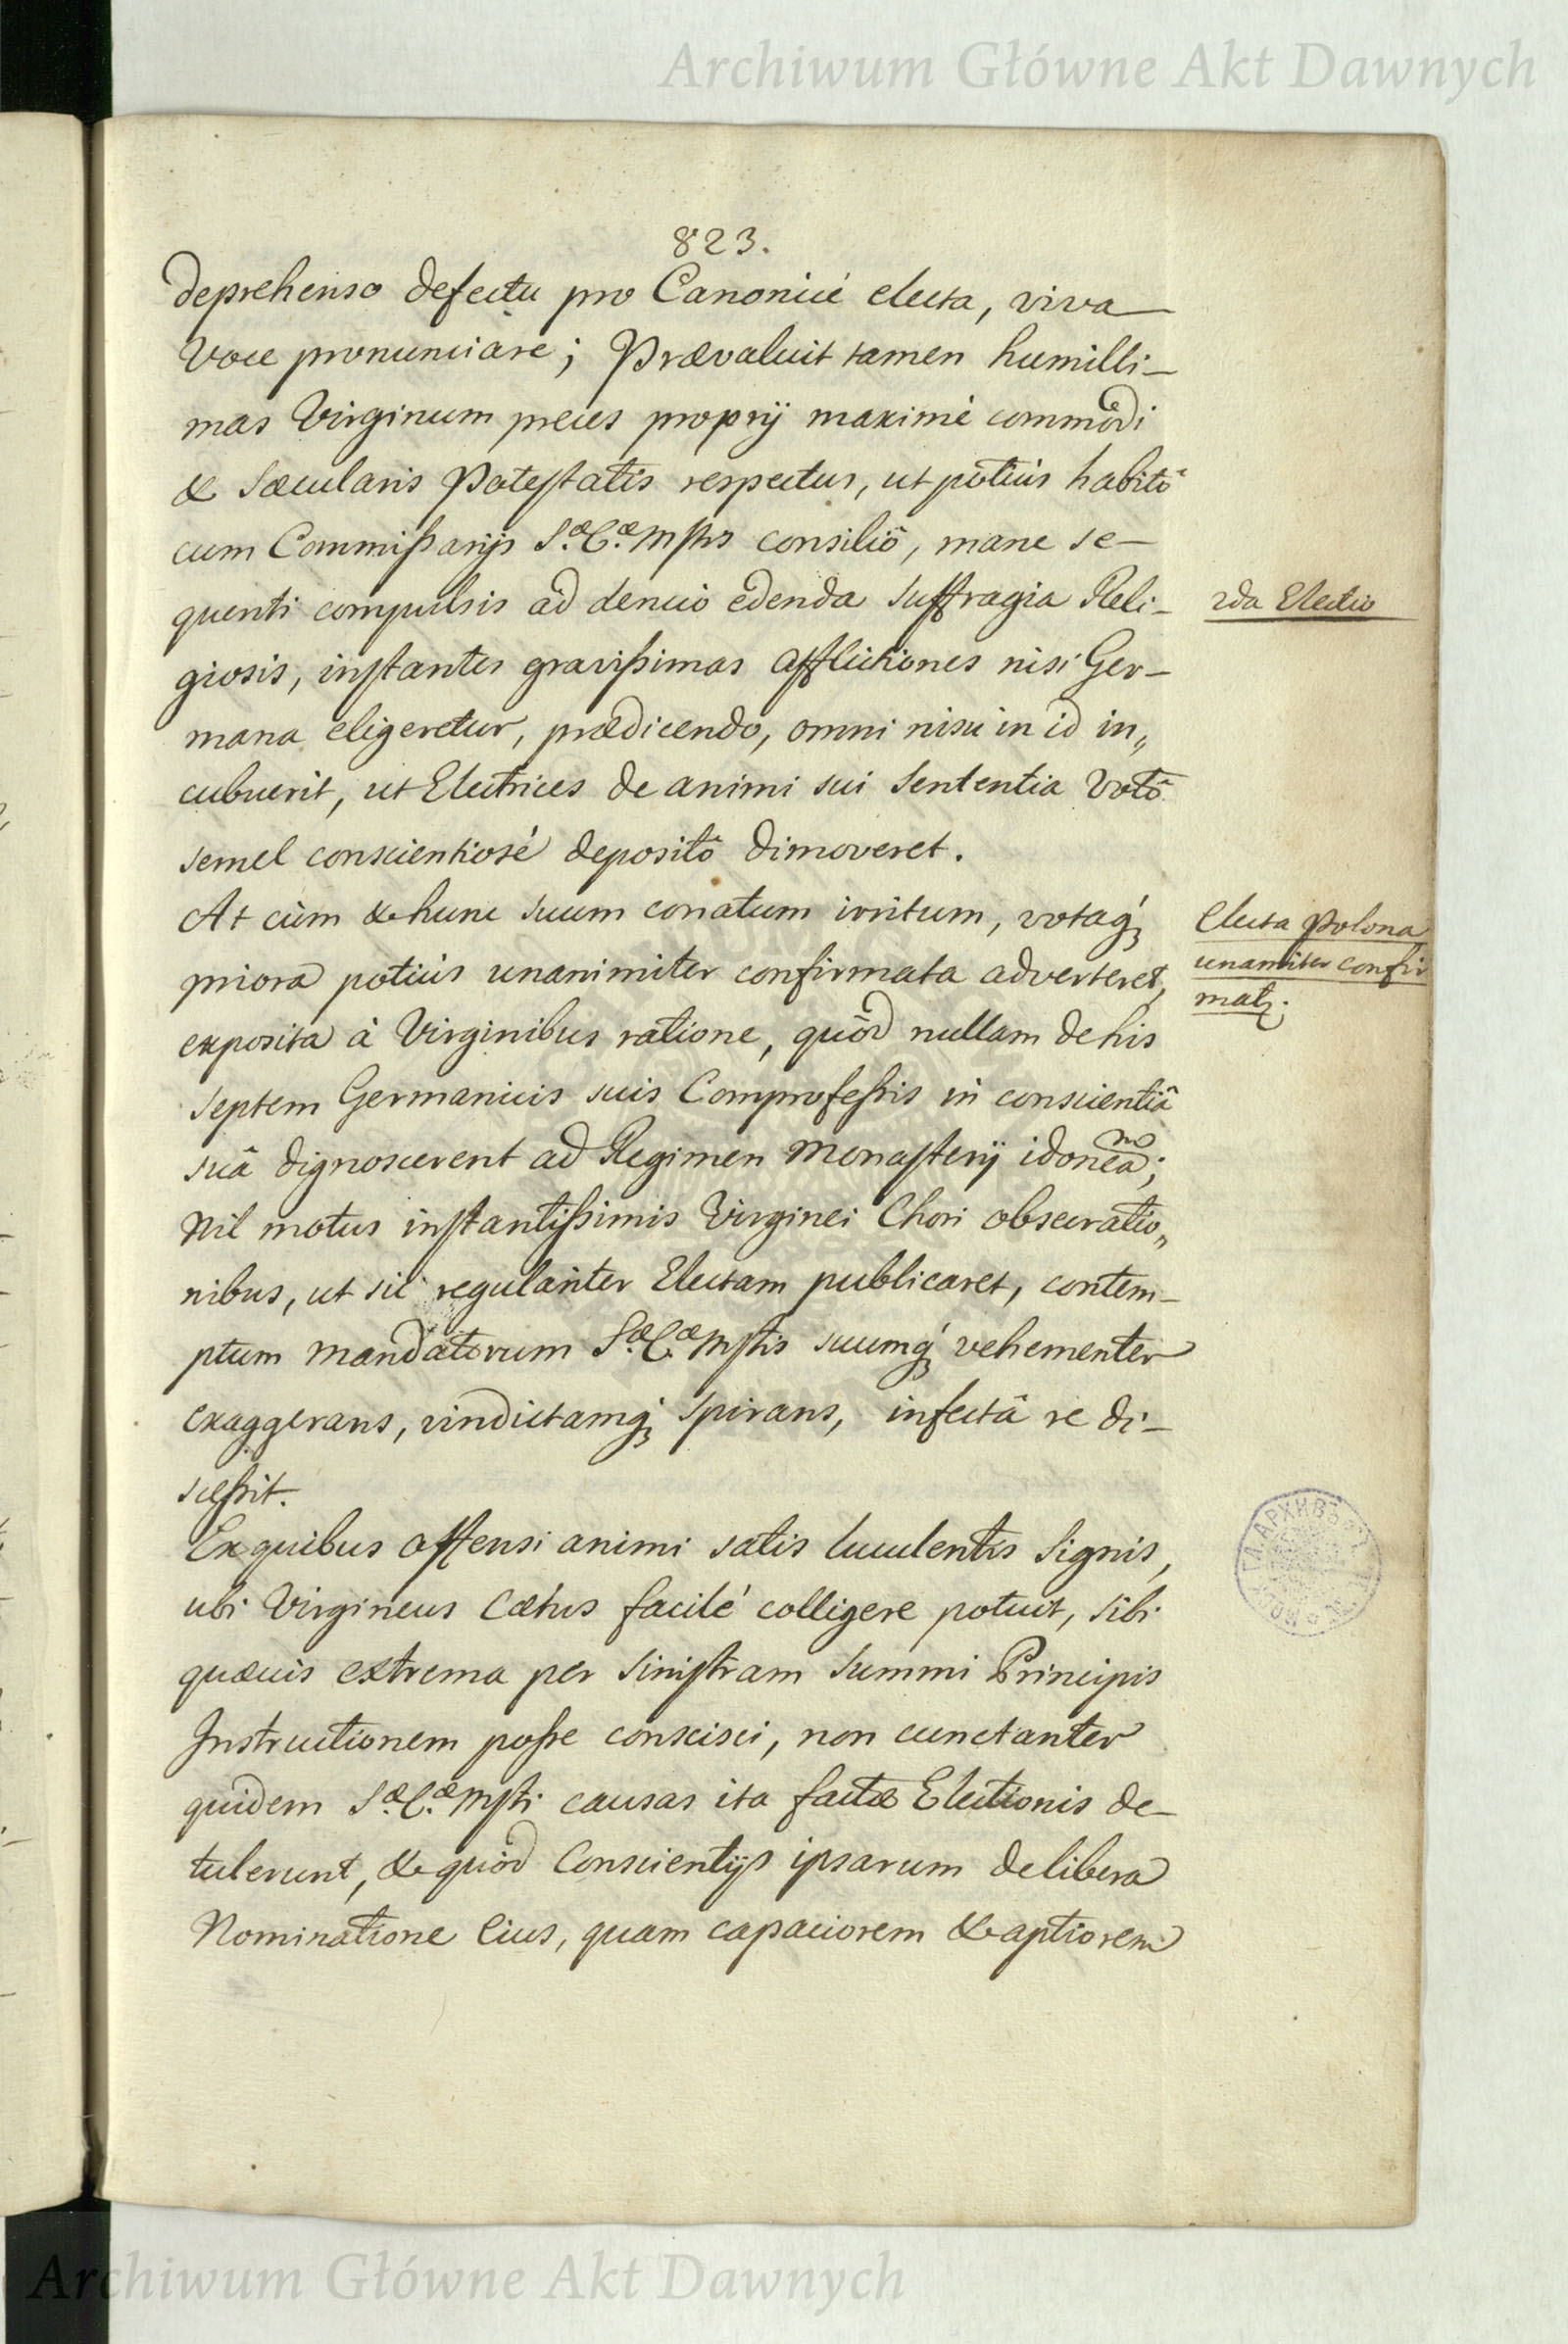 Archiwum Główne Akt Dawnych
823.
deprehenso defectu pro Canonicé electa, viva
voce pronunciare; Prævaluit tamen humilli-
mas Virginum preces proprij maximé commodi
& Sæcularis Potestatis respectus, ut potiùs habitô
cum Commissarijs Sæ Cæ Mttis consiliô, mane se-
quenti compulsis ad denuo edenda suffragia Reli-
giosis, instantes gravissimas afflictiones nisi Ger-
mana eligeretur, prædicendo, omni nisu in id in„
cubuerit, ut Electrices de animi sui Sententia Votô
semel conscientiosé depositô dimoveret.
At cùm & hunc suum conatum irritum, votaq́;
priora potiùs unanimiter confirmata adverteret,
exposita à Virginibus ratione, quòd nullam de his
septem Germanicis suis Comprofessis in conscientiâ
suâ dignoscerent ad Regimen Monasterij idoneam;
Nil motus instantissimis Virginei Chori obsecratio„
nibus, ut sic regulariter Electam publicaret, contem-
ptum mandatorum Sæ Cæ Mttis suumq́; vehementer
exaggerans, vindictamq́; spirans, infectâ re di-
scessit.
Ex quibus offensi animi satis luculentis Signis,
ubi Virgineus Cætus facilé colligere potuit, sibi
quævis extrema per sinistram Summi Principis
Instructionem posse conscisci, non cunctanter
quidem Sæ Cæ Mtti causas ita factæ Electionis de-
tulerunt, & quòd Conscientijs ipsarum de libera
Nominatione Eius, quam capaciorem & aptiorem
2da Electio
Electa Polona
unanitèr confir
mat;.
Archiwum Główne Akt Dawnych